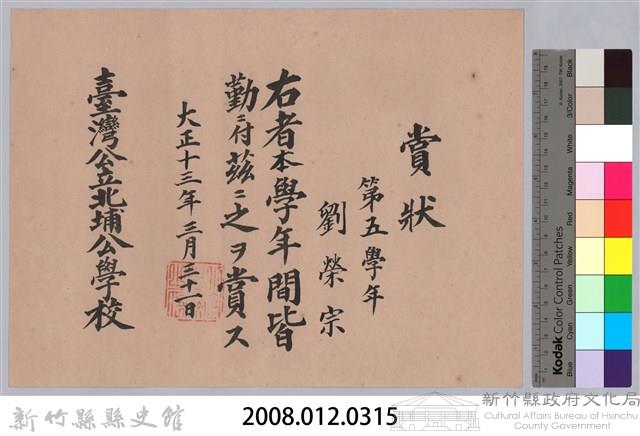 賞狀
第五學年
劉榮宗
右者本學年間皆
勤ニ付茲ニ之ヲ賞ス
大正十三年三月三十一日
臺灣公立北埔公學校
Kodak Color Control Patches
Blue
Cyan
Green
Yellow
Red
Magenta
White
3/Color
Black
新竹縣縣史館
2008.012.0315
新竹縣政府文化局
Cultural Affairs Bureau of Hsinchu
County Government